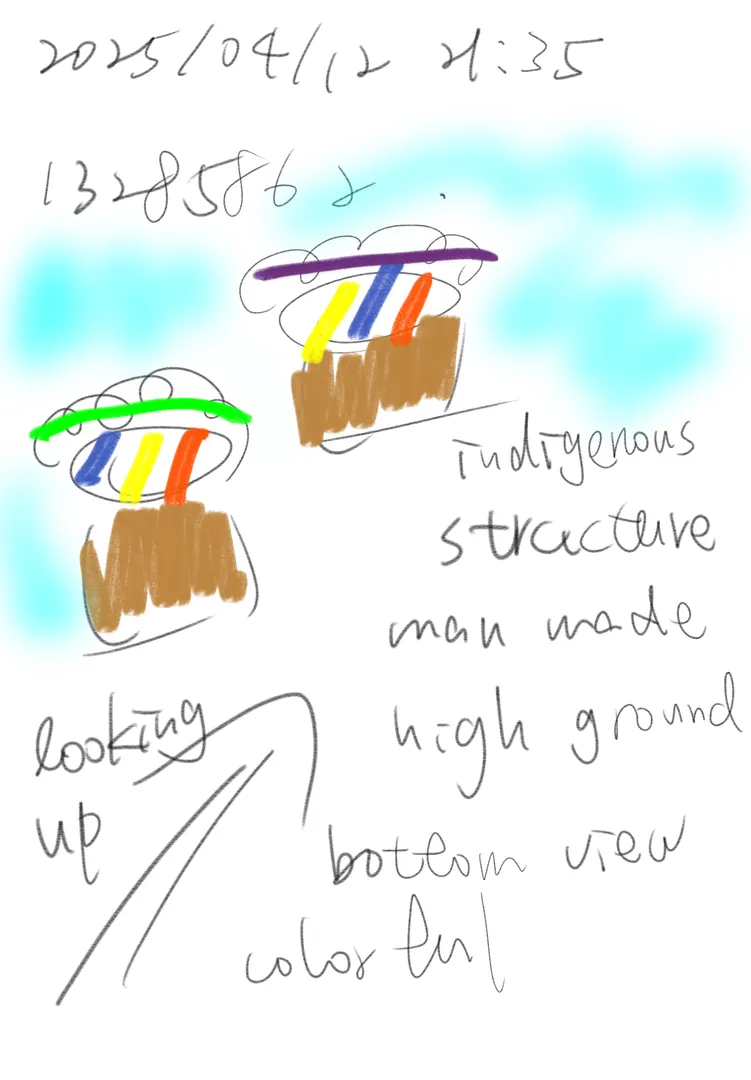 2025/04/12 21:35
13285862
indigenous
structure
man made
looking
high ground
up
bottom view
colorful